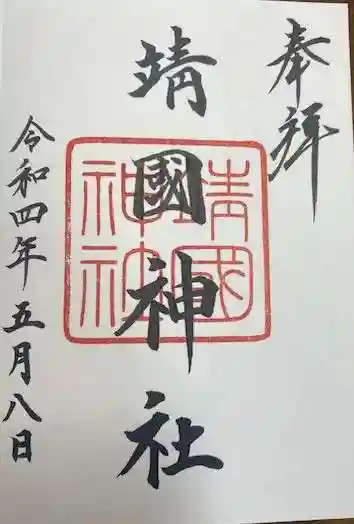 奉拝
靖國神社
靖国
神社
令和四年五月八日